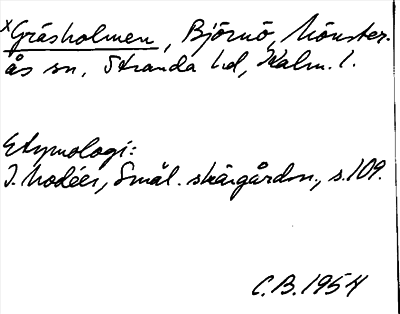 xGräsholmen, Björnö, Mönster-
ås sn, Stranda hd, Kalm. l.
Etymologi:
I. Modéer, Smål. skärgårdsn., s. 109.
C.B. 1954